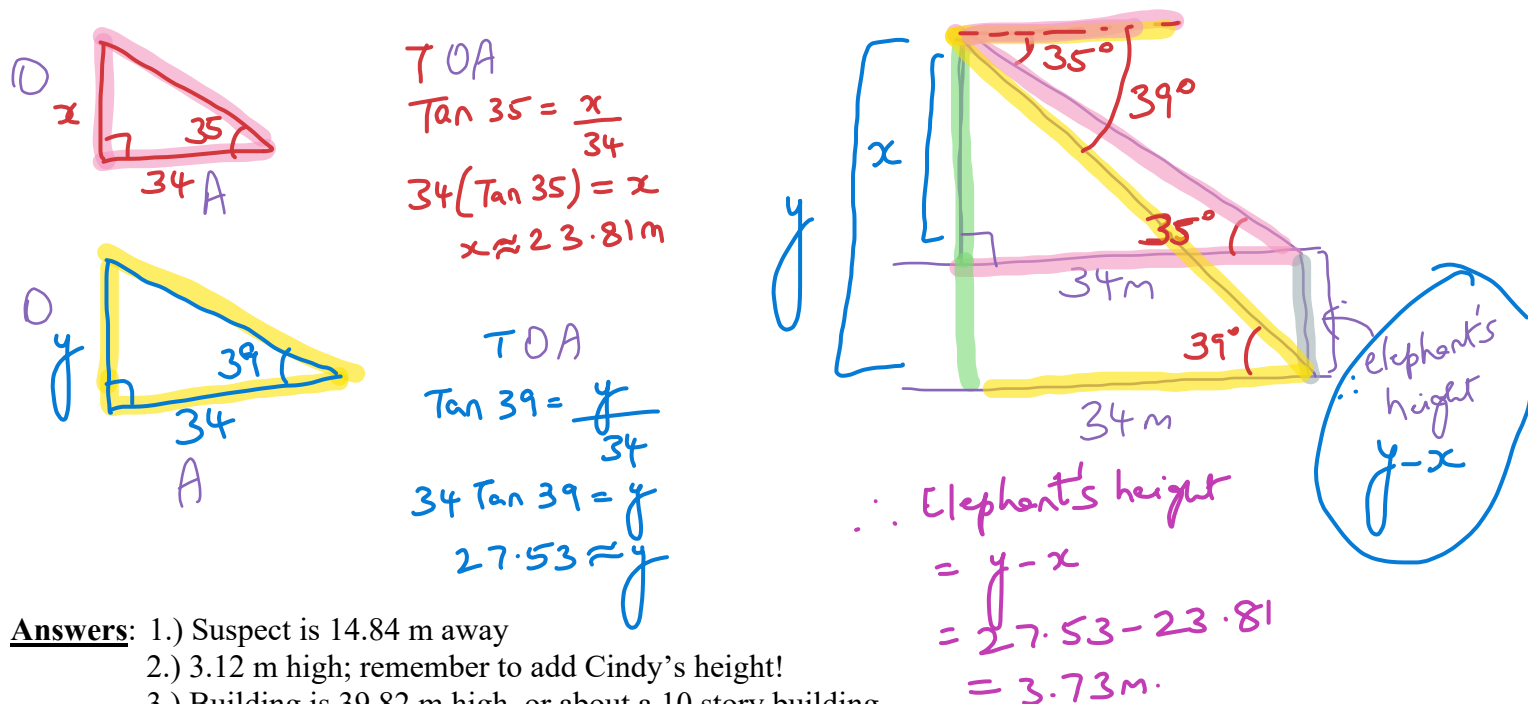 O
x
35
34
A
T O A
Tan 35 = x/34
34(Tan 35) = x
x ≈ 23.81m
O
y
39
34
A
T O A
Tan 39 = y/34
34 Tan 39 = y
27.53 ≈ y
35°
39°
x
y
35°
34m
39°
34m
∴ elephant's
height
y - x
∴ Elephant's height
= y - x
= 27.53 - 23.81
= 3.73m.
Answers: 1.) Suspect is 14.84 m away
2.) 3.12 m high; remember to add Cindy's height!
3.) Building is 39.82 m high, or about a 10 story building